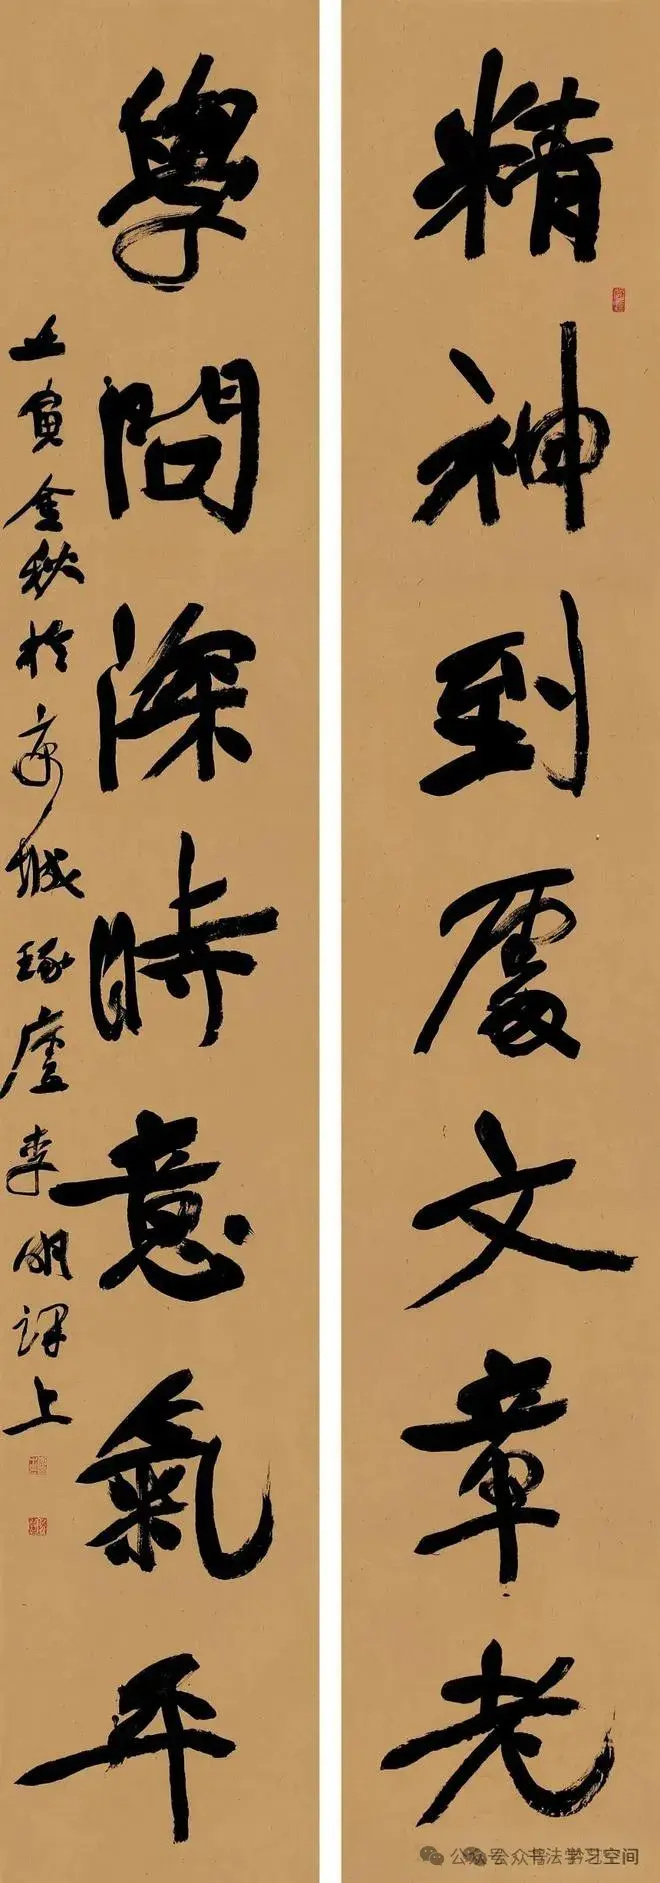 精神到處文章老
學問深時意氣平
壬寅金秋於京城琢廬李明課上
公众号 公众书法学习空间